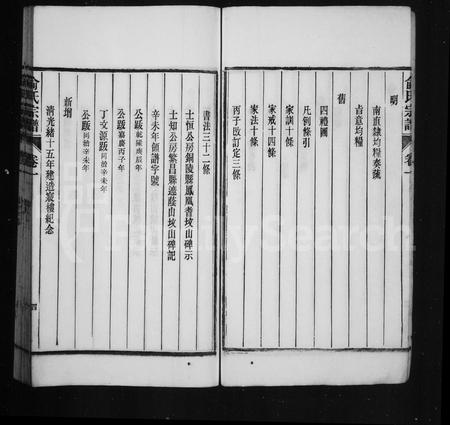 俞氏宗譜
卷一
明
南直隸均糧奏疏
旨意均糧
舊
四禮圖
凡例條引
家訓十條
家戒十四條
家法十條
丙子改訂定三條
書法三十二條
士恒公房銅陵縣鳳凰耆坟山碑示
士知公房繁昌縣遶蔭山坟山碑記
辛未年領譜字號
公跋乾隆庚辰年
公跋嘉慶丙子年
丁文源跋同治辛未年
公跋同治辛未年
新增
清光緒十五年建造寢樓紀念
俞氏宗譜
卷一
四
FamilySearch